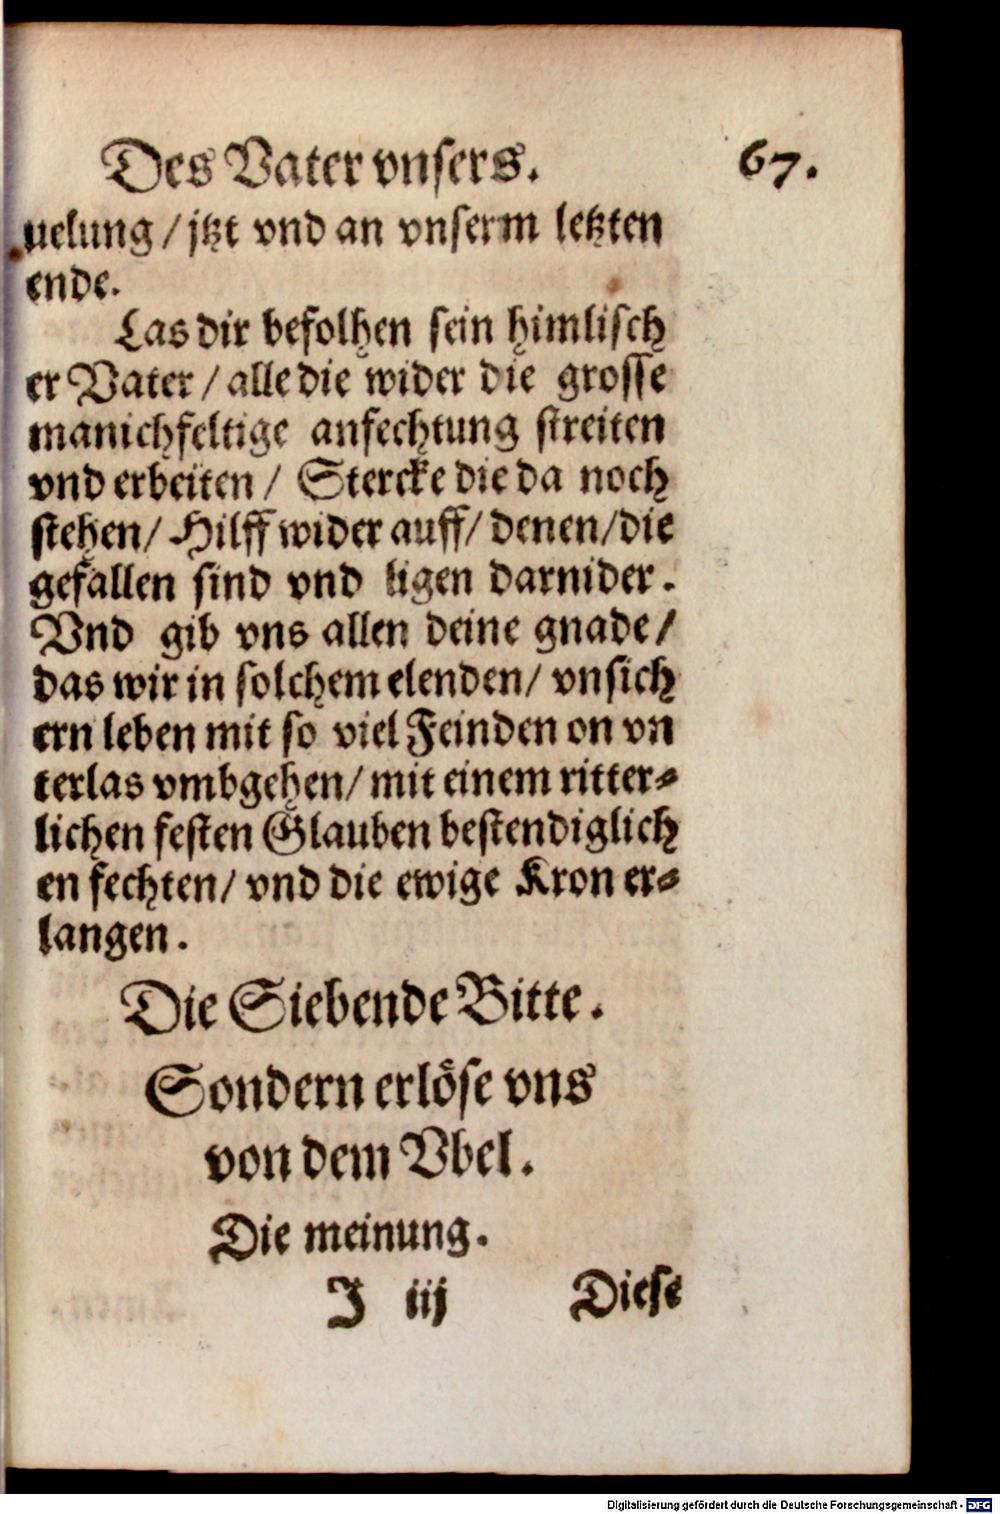 Des Vater vnsers. 67.
uelung / jtzt vnd an vnserm letzten
ende.
Las dir befolhen sein himlisch
er Vater / alle die wider die grosse
manichfeltige anfechtung streiten
vnd erbeiten / Stercke die da noch
stehen / Hilff wider auff / denen / die
gefallen sind vnd ligen darnider.
Vnd gib vns allen deine gnade /
das wir in solchem elenden / vnsich
ern leben mit so viel Feinden on vn
terlas vmbgehen / mit einem ritter⸗
lichen festen Glauben bestendiglich
en fechten / vnd die ewige Kron er⸗
langen.
Die Siebende Bitte.
Sondern erlöse vns
von dem Vbel.
Die meinung.
J iij Diese
Digitalisierung gefördert durch die Deutsche Forschungsgemeinschaft - DFG